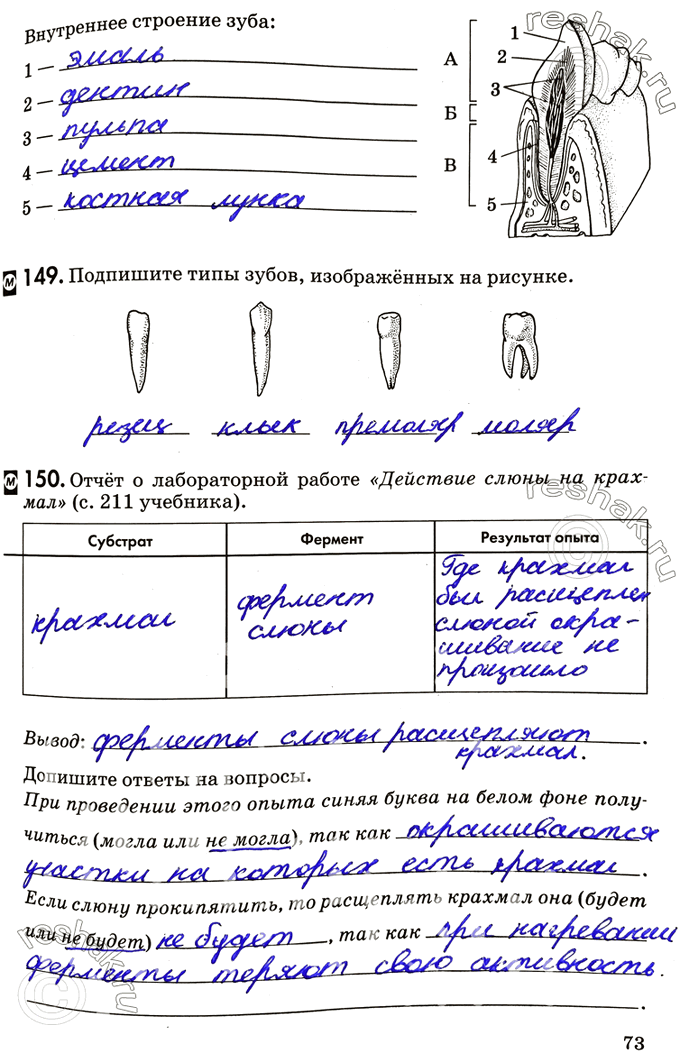 Внутреннее строение зуба:
1 – эмаль
2 – дентин
3 – пульпа
4 – цемент
5 – костная лунка
А
Б
В
1
2
3
4
5
reshak.ru
м 149. Подпишите типы зубов, изображённых на рисунке.
резец клык премоляр моляр
м 150. Отчёт о лабораторной работе «Действие слюны на крах-
мал» (с. 211 учебника).
reshak.ru
Субстрат Фермент Результат опыта
крахмал
фермент
слюны
Где крахмал
был расщеплен
слюной окра-
шивание не
произошло
Вывод: ферменты слюны расщепляют
крахмал.
Допишите ответы на вопросы.
При проведении этого опыта синяя буква на белом фоне полу-
читься (могла или не могла), так как окрашиваются
участки на которых есть крахмал.
Если слюну прокипятить, то расщеплять крахмал она (будет
или не будет) не будет, так как при нагревании
ферменты теряют свою активность.
reshak.ru
73